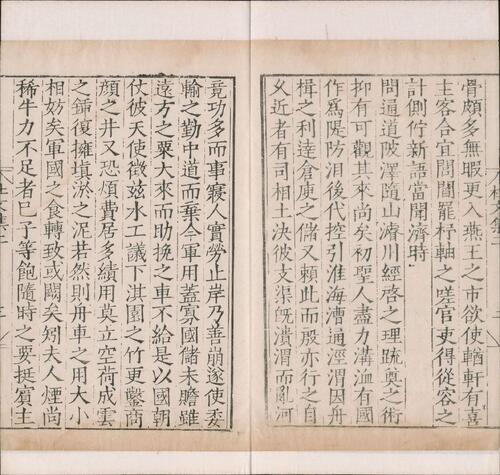 骨頗多無暇更入燕王之市欲使輶軒有喜
主客合宜閭閻罷杼軸之嗟官吏得從容之
計側佇新語當聞濟時
問通道陂澤隨山濬川經啓之理䟽奠之術
抑有可觀其來尚矣初聖人盡力溝洫有國
作爲隄防洎後代控引淮海漕通涇渭因舟
楫之利達倉庾之儲又頼此而殷亦行之自
久近者有司相土決彼支渠旣潰渭而亂河
竟功多而事寢人實勞止岸乃善崩遂使委
輸之勤中道而棄今軍用蓋寡國儲未贍雖
遠方之粟大來而助挽之車不給是以國朝
仗彼天使徵茲水工議下淇園之竹更鑿商
顔之井又恐煩費居多績用莫立空荷成雲
之鍤復擁塡淤之泥若然則舟車之用大小
相妨矣軍國之食轉致或闕矣矧夫人煙尚
稀牛力不足者已子等飽隨時之要挺賓主